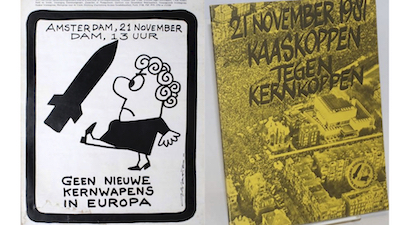 AMSTERDAM, 21 NOVEMBER
DAM, 13 UUR
GEEN NIEUWE
KERNWAPENS
IN EUROPA
21 NOVEMBER 1981
KAASKOPPEN
TEGEN
KERNKOPPEN